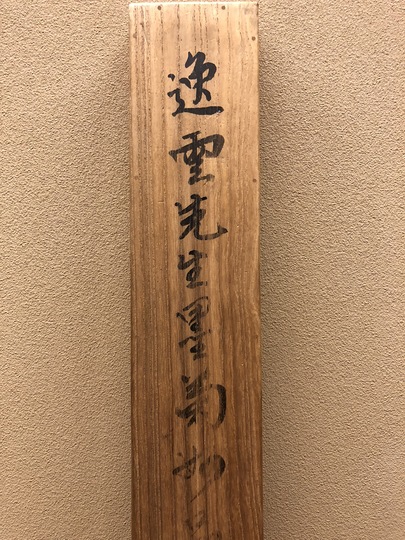 逸雲先生墨菊